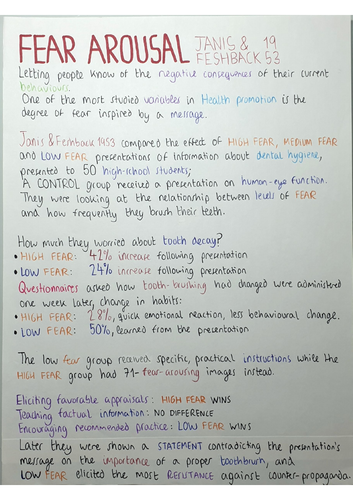 FEAR AROUSAL JANIS & 19
FESHBACK 53
Letting people know of the negative consequences of their current
behaviours.
One of the most studied variables in Health promotion is the
degree of fear inspired by a message.
Janis & Feshback 1953 compared the effect of HIGH FEAR, MEDIUM FEAR
and LOW FEAR presentations of information about dental hygiene,
presented to 50 high-school students;
A CONTROL group received a presentation on human-eye function.
They were looking at the relationship between levels of FEAR
and how frequently they brush their teeth.
How much they worried about tooth decay?
• HIGH FEAR: 42% increase following presentation
• LOW FEAR: 24% increase following presentation
Questionnaires asked how tooth-brushing had changed were administered
one week later, change in habits:
• HIGH FEAR: 28%, quick emotional reaction, less behavioural change.
• LOW FEAR: 50%, learned from the presentation
The low fear group received specific, practical instructions while the
HIGH FEAR group had 71-fear-arousing images instead.
Eliciting favorable appraisals: HIGH FEAR WINS
Teaching factual information: NO DIFFERENCE
Encouraging recommended practice: LOW FEAR WINS
Later they were shown a STATEMENT contradicting the presentation's
message on the importance of a proper toothbrush, and
LOW FEAR elicited the most RELUTANCE against counter-propaganda.